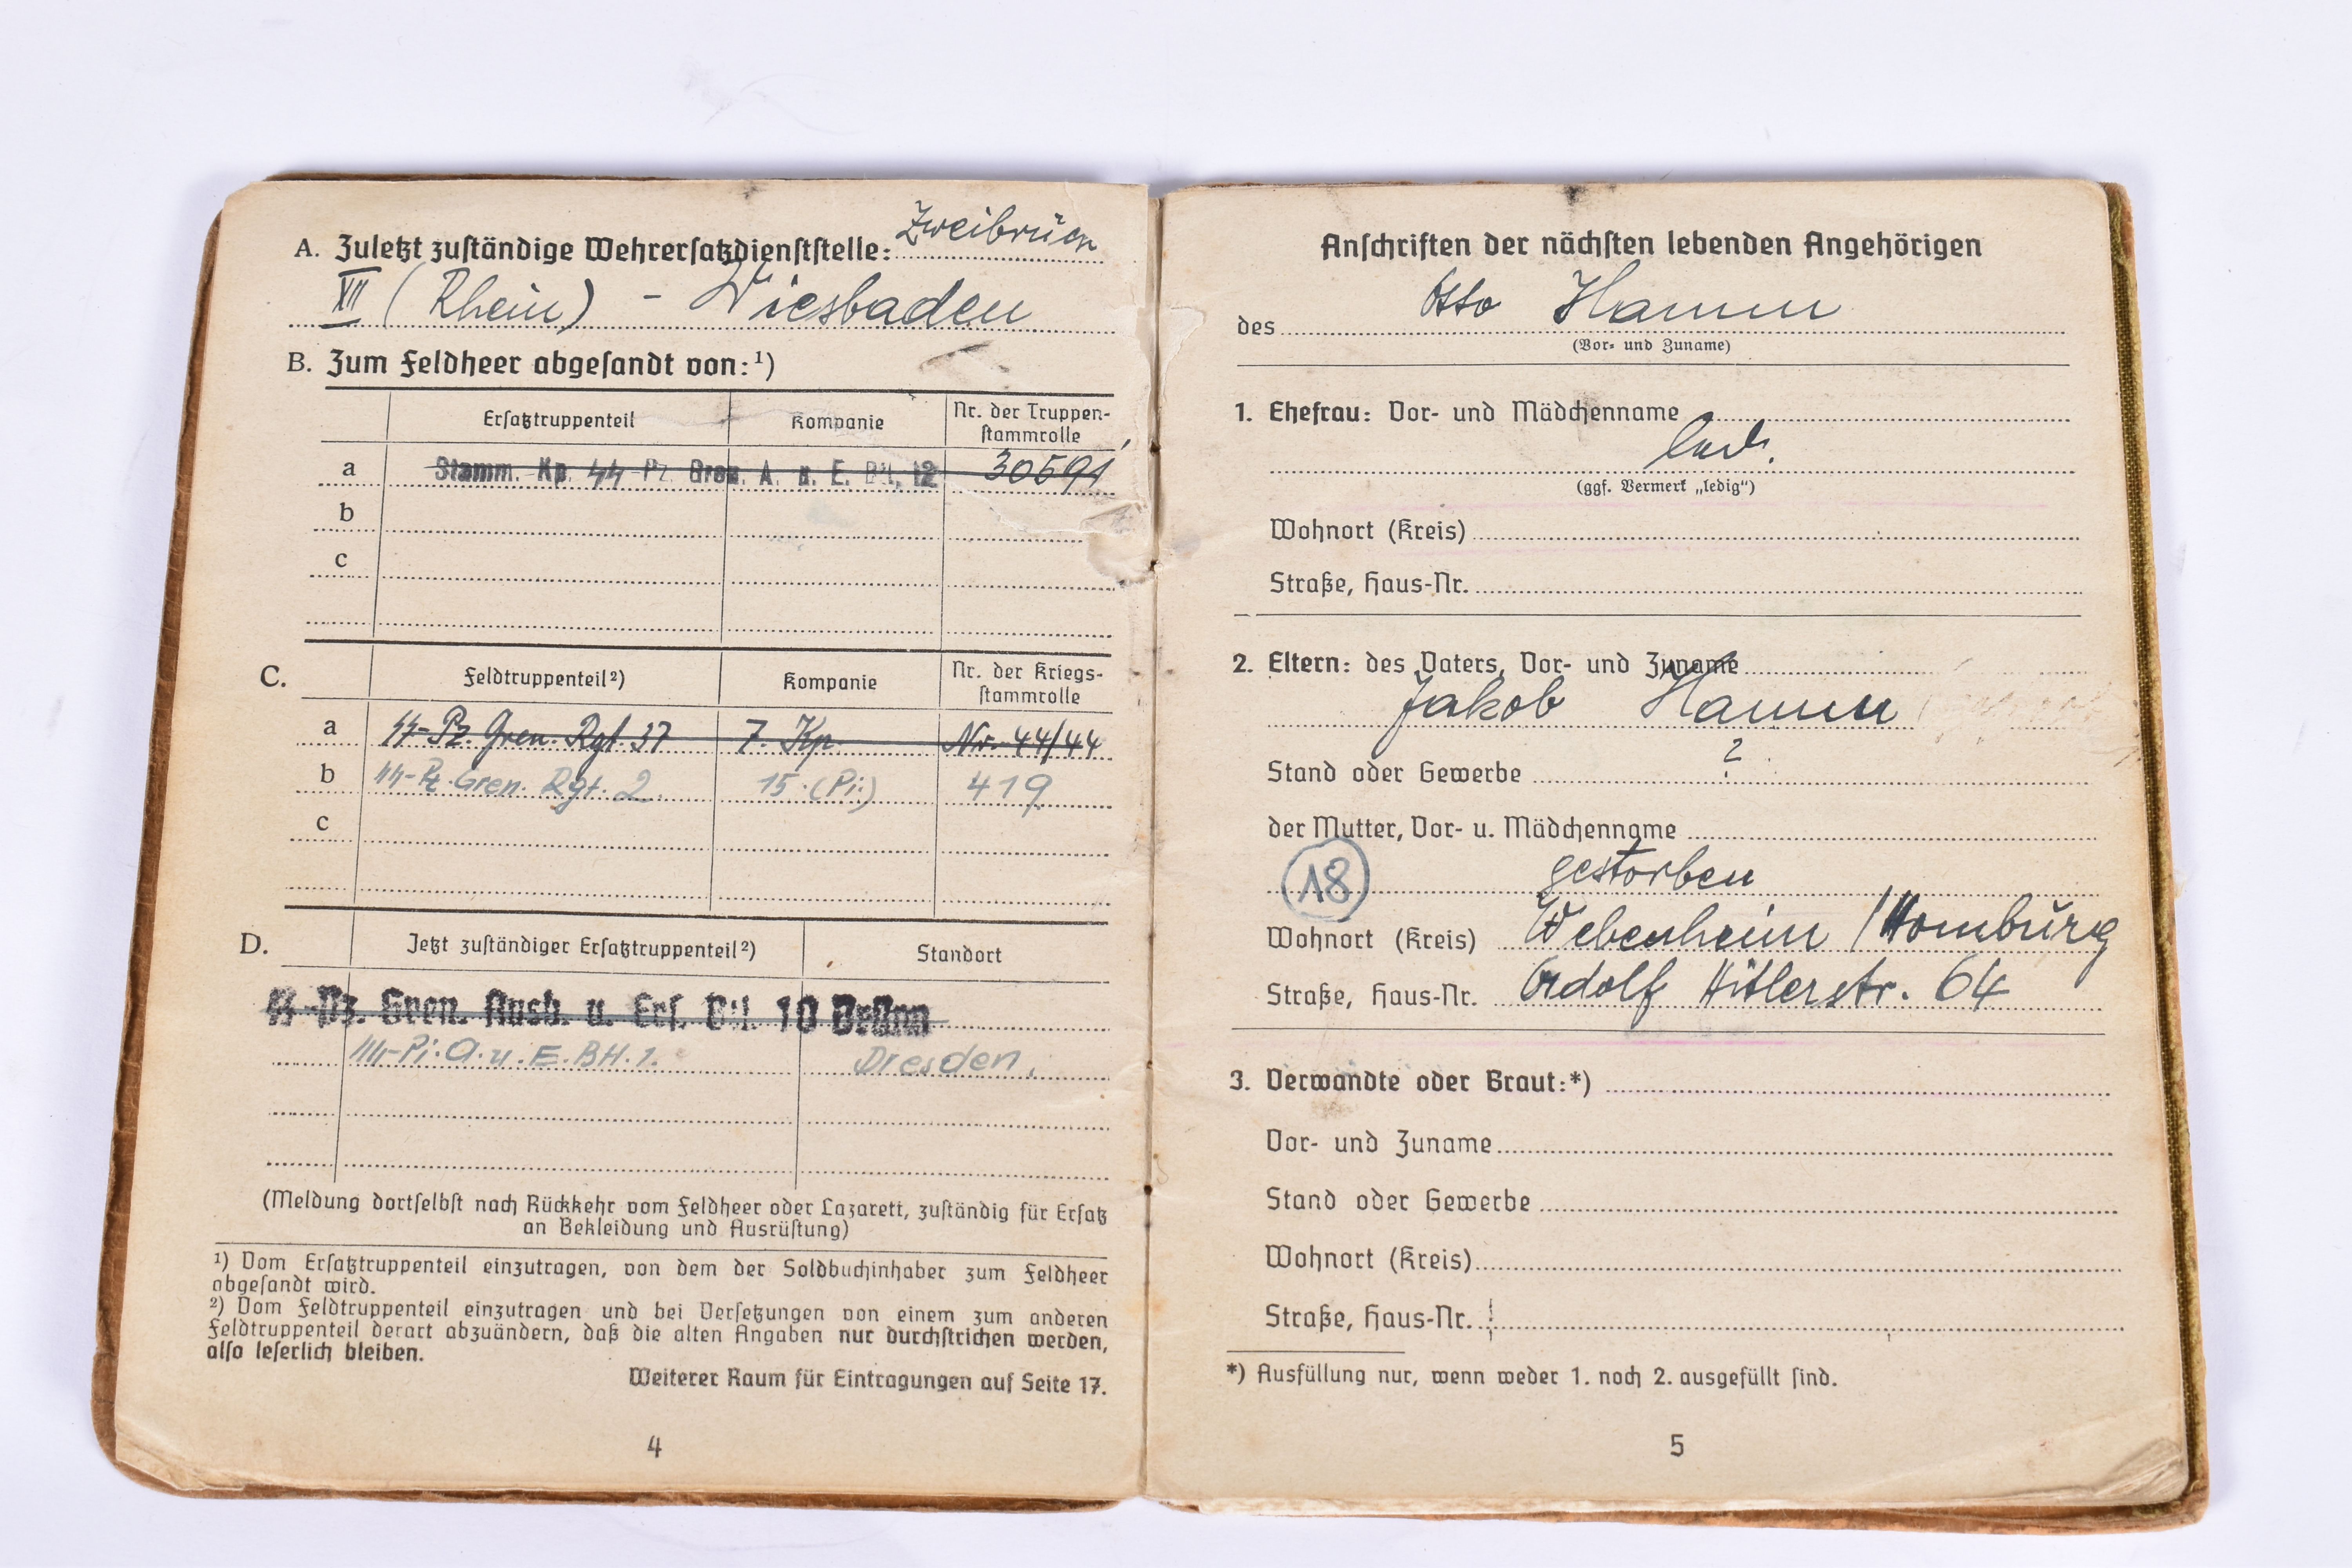 A. Zuletzt zuständige Wehrersatzdienststelle: Zweibrück
XII (Rhein) - Wiesbaden
B. Zum Feldheer abgesandt von:¹)
Ersatztruppenteil Kompanie Nr. der Truppen-
stammrolle
a Stamm. Kp. ᛋᛋ-Pz. Gren. A. u. E. Btl. 12 30591
b
c
C. Feldtruppenteil²) Kompanie Nr. der Kriegs-
stammrolle
a ᛋᛋ-Pz. Gren. Rgt. 37 7. Kp. Nr. 44/44
b ᛋᛋ-Pz. Gren. Rgt. 2. 15. (Pi.) 419
c
D. Jetzt zuständiger Ersatztruppenteil²) Standort
ᛋᛋ-Pz. Gren. Ausb. u. Ers. Btl. 10 Brünn
ᛋᛋ-Pi. A. u. E. Btl. 1. Dresden.
(Meldung dortselbst nach Rückkehr vom Feldheer oder Lazarett, zuständig für Ersatz
an Bekleidung und Ausrüstung)
¹) Vom Ersatztruppenteil einzutragen, von dem der Soldbuchinhaber zum Feldheer
abgesandt wird.
²) Vom Feldtruppenteil einzutragen und bei Versetzungen von einem zum anderen
Feldtruppenteil derart abzuändern, daß die alten Angaben nur durchstrichen werden,
also leserlich bleiben.
Weiterer Raum für Eintragungen auf Seite 17.
4
Anschriften der nächsten lebenden Angehörigen
des Otto Hamm
(Vor- und Zuname)
1. Ehefrau: Vor- und Mädchenname
led.
(ggf. Vermerk „ledig“)
Wohnort (Kreis)
Straße, Haus-Nr.
2. Eltern: des Vaters, Vor- und Zuname
Jakob Hamm
Stand oder Gewerbe ?
der Mutter, Vor- u. Mädchenname
18 gestorben
Wohnort (Kreis) Webenheim / Homburg
Straße, Haus-Nr. Adolf Hitlerstr. 64
3. Verwandte oder Braut:*)
Vor- und Zuname
Stand oder Gewerbe
Wohnort (Kreis)
Straße, Haus-Nr.
*) Ausfüllung nur, wenn weder 1. noch 2. ausgefüllt sind.
5